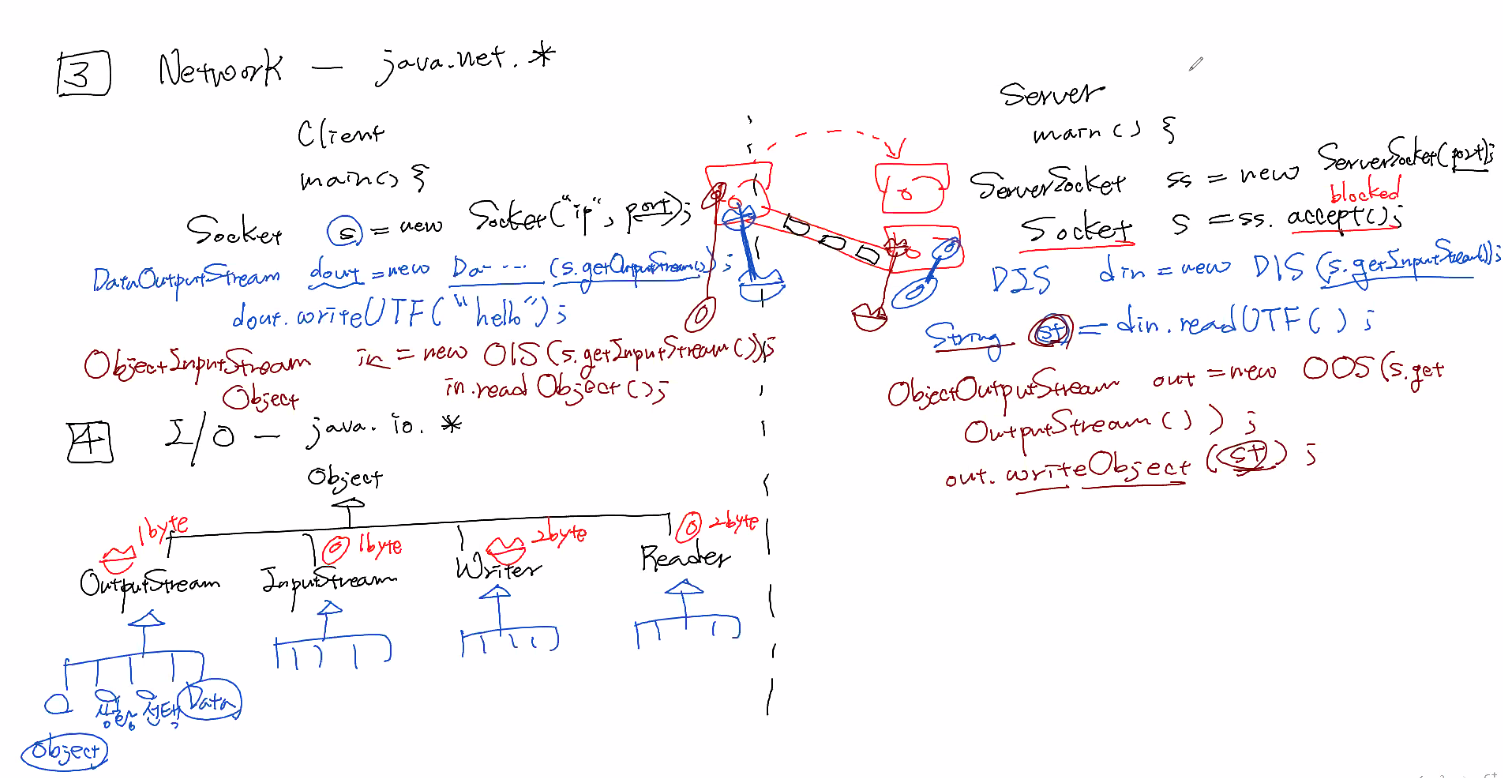 3 Network — java.net.*
Client
main() {
Socket s = new Socket("ip", port);
DataOutputStream dout = new Da---- (s.getOutputStream());
dout.writeUTF("hello");
ObjectInputStream in = new OIS(s.getInputStream());
Object in.readObject();
Server
main() {
ServerSocket ss = new ServerSocket(port);
blocked
Socket s = ss. accept();
DIS din = new DIS(s.getInputStream());
String st = din.readUTF();
ObjectOutputStream out = new OOS(s.get
OutputStream());
out.writeObject(st);
4 I/O — java.io.*
Object
1byte 1byte 2byte 2byte
OutputStream InputStream Writer Reader
선택 Data
Object